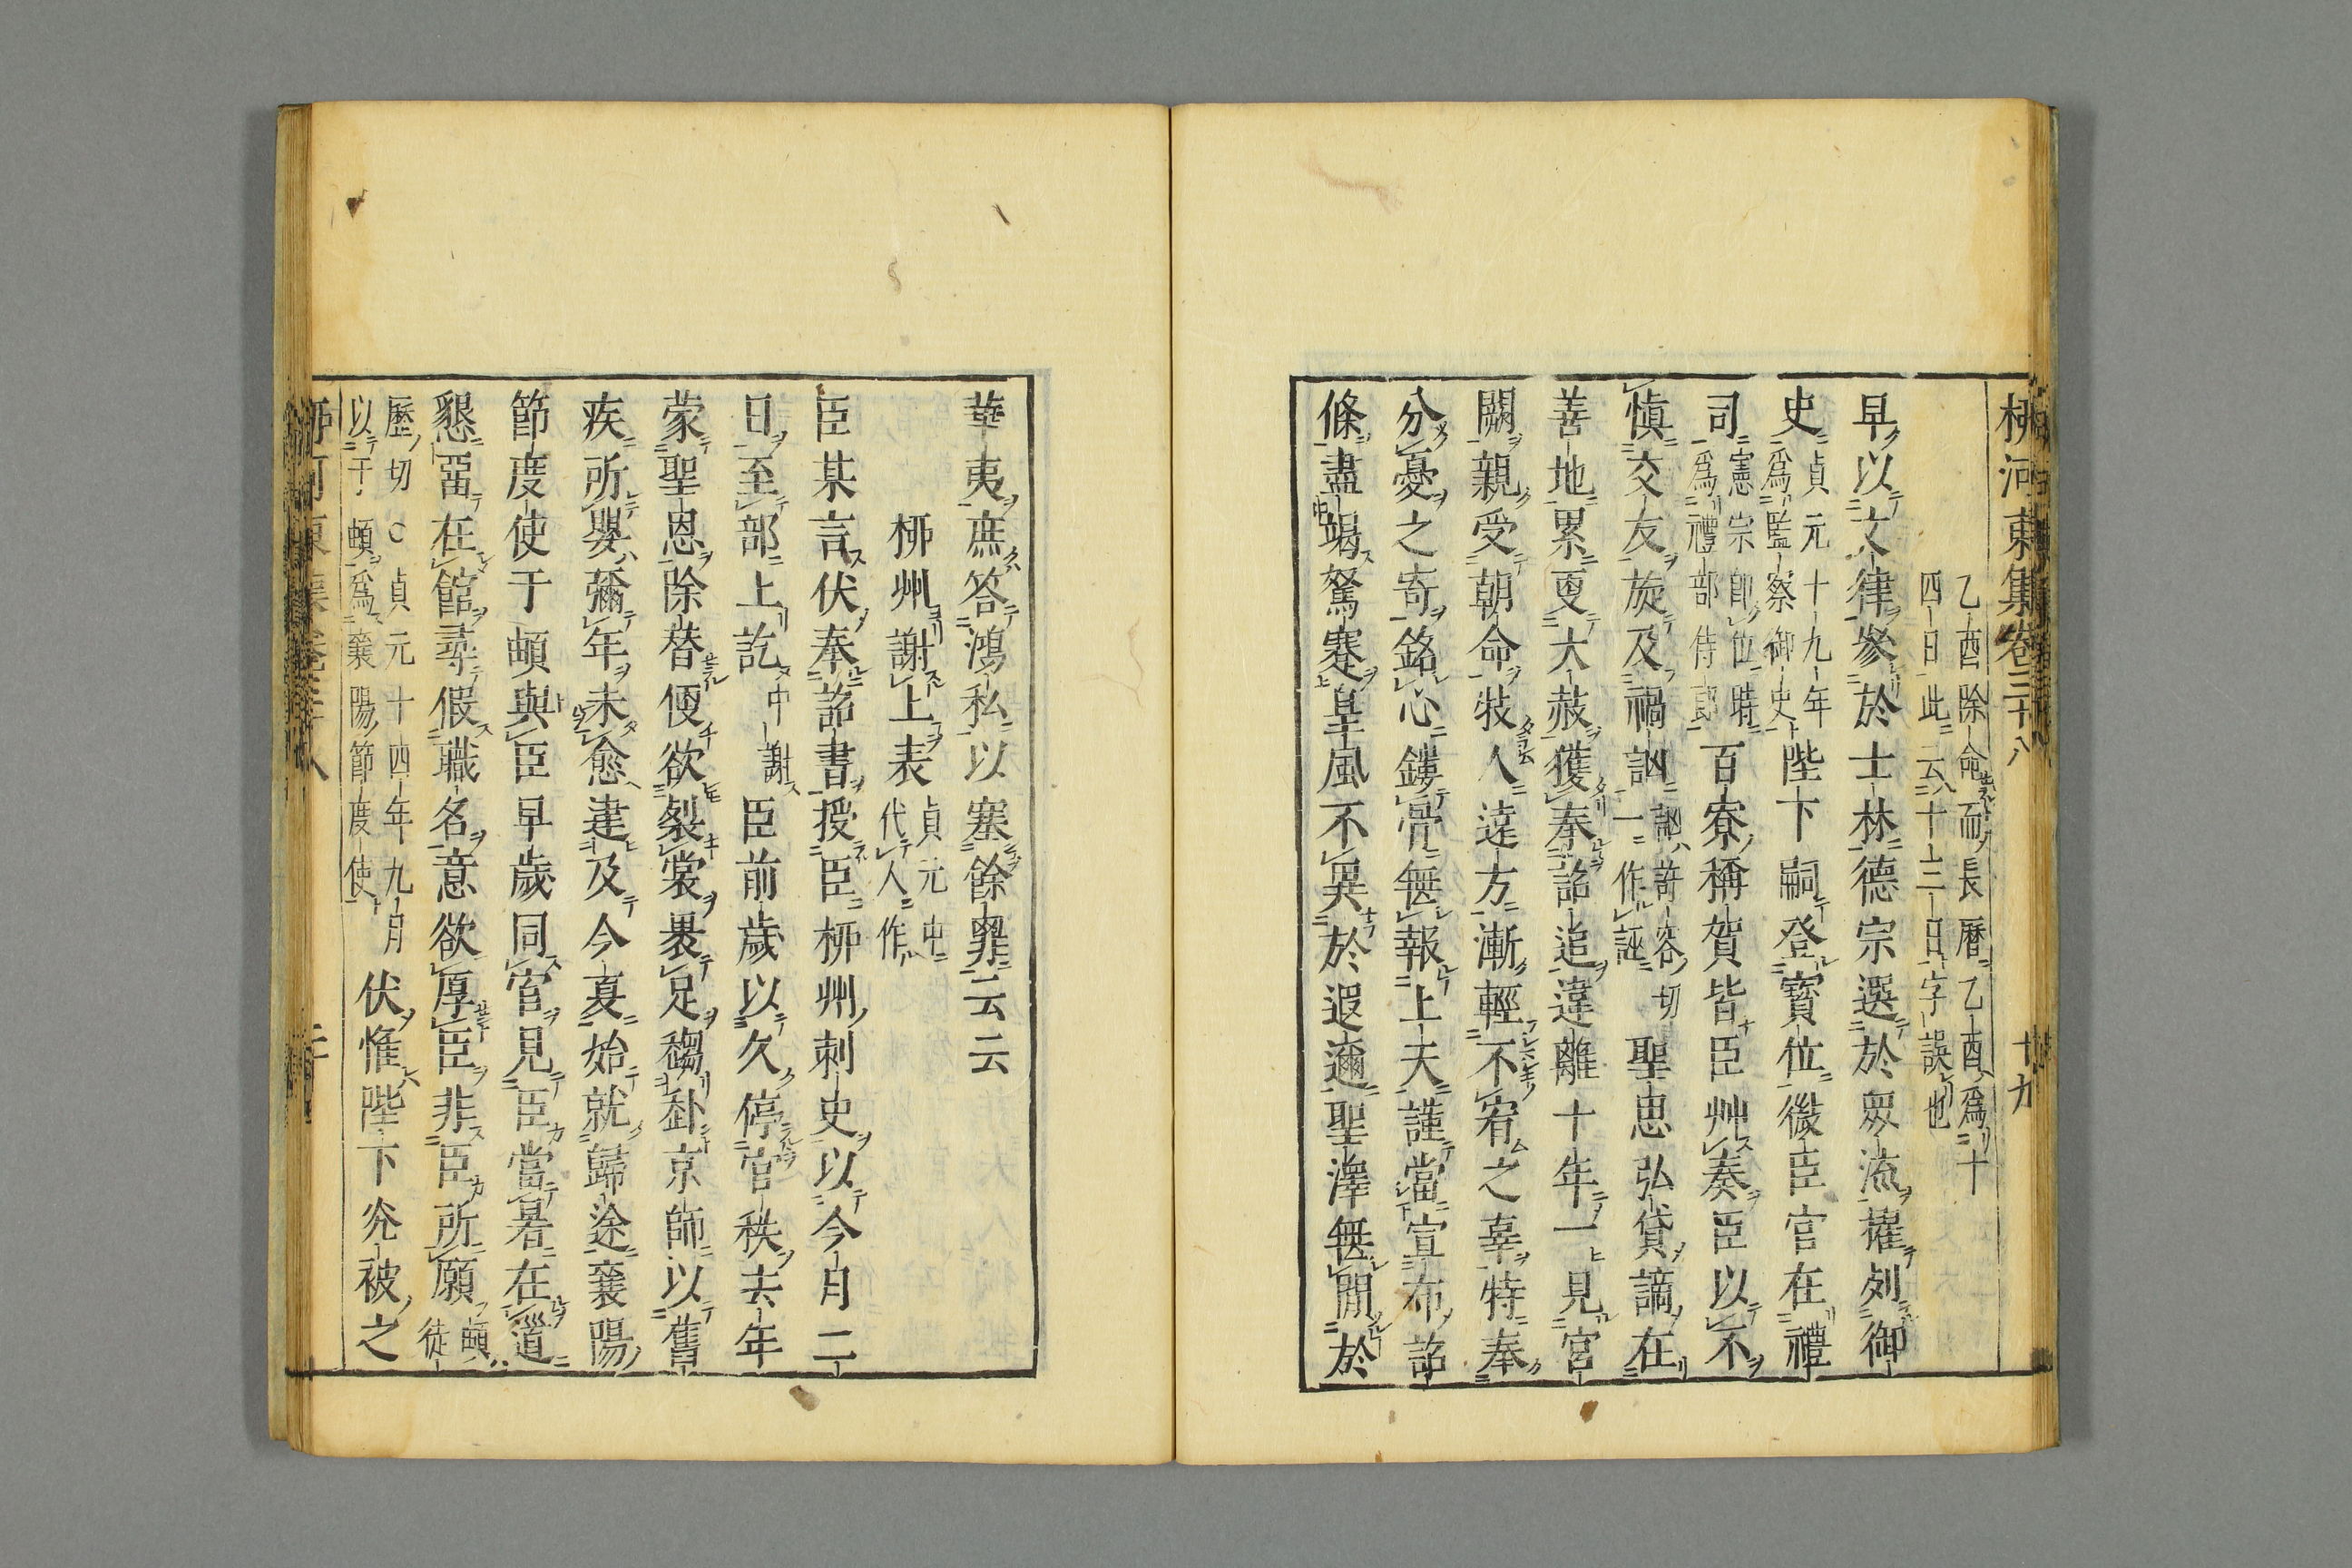 柳河東集卷三十八　十九
乙酉除命而長曆乙酉爲十
四日此云十三日字誤也
早以文律參於士林德宗選於衆流擢列御
史貞元十九年爲監察御史陛下嗣登寶位微臣官在禮
司憲宗卽位時爲禮部侍郎百寮稱賀皆臣艸奏臣以不
愼交友旋及禍訩訩許容切一作誣聖恩弘貸謫在
善地累更大赦獲奉詔追違離十年一見宮
闕親受朝命牧人遠方漸輕不宥之辜特奉
分憂之寄銘心鏤骨無報上天謹當宣布詔
條盡竭駑蹇皇風不異於遐邇聖澤無間於
華夷庶答鴻私以塞餘罪云云
柳州謝上表貞元中代人作
臣某言伏奉詔書授臣柳州刺史以今月二
日至部上訖中謝臣前歲以久停官秩去年
蒙聖恩除替便欲裂裳裹足趨赴京師以舊
疾所嬰彌年未愈逮及今夏始就歸途襄陽
節度使于頔與臣早歲同官見臣當暑在道
懇留在館尋假職名意欲厚臣非臣所願頔徒
歷切○貞元十四年九月以于頔爲襄陽節度使伏惟陛下光被之
柳河東集卷三十八　二十